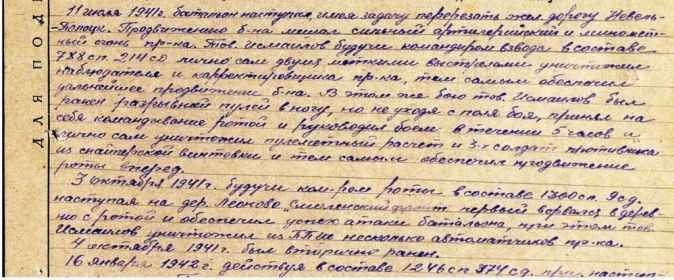 11 июля 1941г. батальон наступал, имея задачу перерезать жел. дорогу Невель-
-Полоцк. Продвижению б-на мешал сильный артиллерийский и миномет-
ный огонь пр-ка. Тов. Исмаилов будучи командиром взвода в составе
788 сп. 214 сд лично сам двумя меткими выстрелами уничтожил
наблюдателя и корректировщика пр-ка, тем самым обеспечил
дальнейшее продвижение б-на. В этом же бою тов. Исмаилов был
ранен разрывной пулей в ногу, но не уходя с поля боя, принял на
себя командование ротой и руководил боем в течении 5 часов и
лично сам уничтожил пулеметный расчет и 3-х солдат противника
из снайперской винтовки и тем самым обеспечил продвижение
роты вперед.
3 октября 1941г. будучи ком-ром роты в составе 1300 сп. 9 сд.
наступая на дер. Леоново Смоленский фронт первый ворвался в дерев-
ню с ротой и обеспечил успех атаки батальона, при этом тов.
Исмаилов уничтожил из ППШ несколько автоматчиков пр-ка.
4 октября 1941г. был вторично ранен.
16 января 1942г. действуя в составе 1246 сп 374 сд. при наступ-
ДЛЯ ПОД